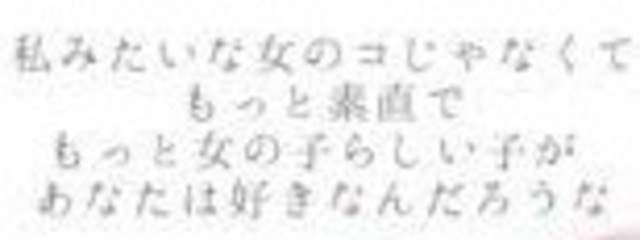 私みたいな女のコじゃなくて
もっと素直で
もっと女の子らしい子が
あなたは好きなんだろうな